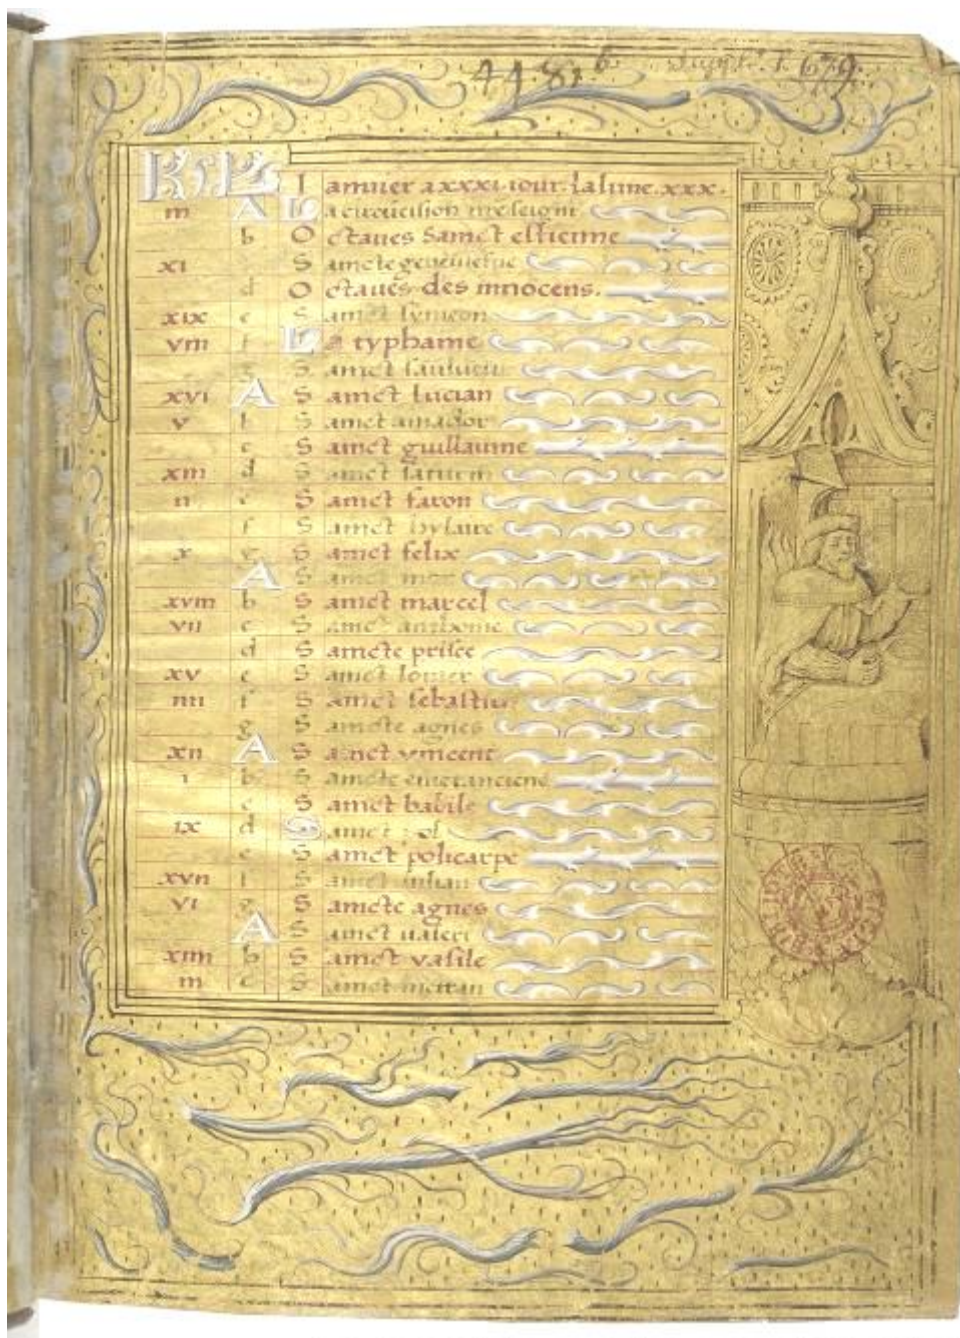 4481 b. Suppl. l. 679.
KL Januier a xxxi iour. la lune. xxx.
iii A La circūcision nrē seignr
b Octaues Sainct estienne
xi Saincte geneuiefue
d Octaues des innocens.
xix e Sainct symeon
viii f La typhame
g Sainct
xvi A Sainct lucian
v b Sainct amador
c Sainct guillaume
xiii d Sainct
ii e Sainct faron
f Sainct hylaire
x g Sainct felix
A Sainct mor
xviii b Sainct marcel
vii c Sainct anthoine
d Saincte prisce
xv e Sainct lomer
iiii f Sainct sebastien
g Saincte agnes
xii A Sainct vincent
i b Saincte emerancienne
c Sainct babile
ix d Sainct pol
e Sainct policarpe
xvii f Sainct iulian
vi g Saincte agnes
A Sainct ualeri
xiiii b Sainct vasile
iii c Sainct